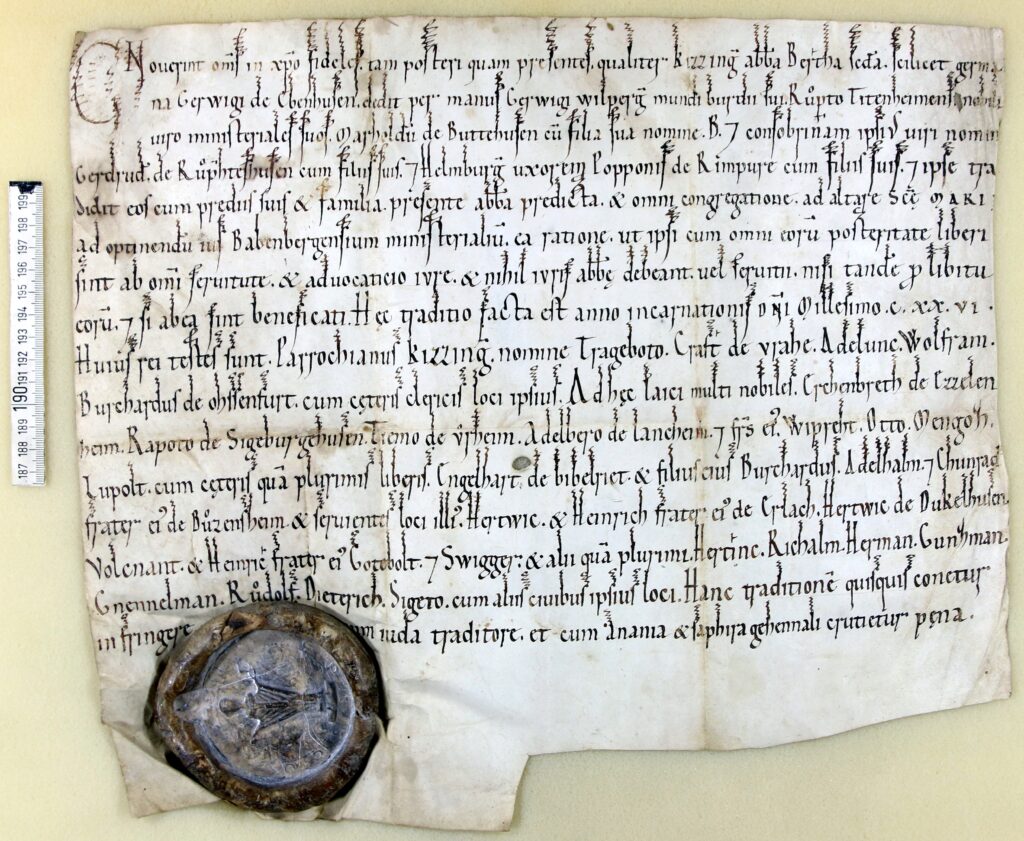 Noverint oms in xpo fideles. tam posteri quam presentes. qualiter Kizzing abba Bertha seda. scilicet germa
na Gerwigi de Ebenhusen. dedit per manus Gerwigi wilperg mundiburdii sui. Ruͦpto Titenheimensi nobili
viro ministeriales suos. Marholdu de Buttehusen cu filia sua nomine. B. ⁊ consobrinam ipsius viri nomin
Gerdrud. de Ruͦphteshusen cum filiis suis. ⁊ Helmburg uxorem Popponis de Rimpure cum filiis suis. ⁊ ipse tra
didit eos cum prediis suis & familia. presente abba predicta. & omni congregatione. ad altare Scę MARI
ad optinendu ius Babenbergensium ministerialiu. ea ratione. ut ipsi cum omni eoru posteritate liberi
sint ab omi servitute. & advocaticio iure. & nihil iuris abbę debeant. vel servitii. nisi tande p libitu
eoru. ⁊ si ab ea sint beneficati. Hęc traditio facta est anno incarnationis dni Millesimo. c. xx. vi.
Huius rei testes sunt. Parrochianus Kizzing. nomine Trageboto. Craft de vrahe. Adelunc. Wolfram.
Burchardus de ohssenfurt. cum cęteris clericis loci ipsius. Ad hęc laici multi nobiles. Erchenbreth de Ezzelen
heim. Rapoto de Sigeburgehusen. Tiemo de vrheim. Adelbero de lancheim. ⁊ frs ei. Wipreht. Otto. Mengoh.
Lupolt. cum cęteris qua plurimis liberis. Engelhart. de bibelriet. & filius eius Burchardus. Adelhalm. ⁊ Chunrad
frater ei de Buͦzensheim & servientes loci illi. Hertwic. & Heinrich frater ei de Erlach. Hertwic de Dukelhusen.
Volcnant. & Heinric frater ei Gotebolt. ⁊ Swigger. & alii qua plurimi. Hertinc. Richalm. Herman. Gunthman.
Gnennelman. Ruͦdolf. Dieterich. Sigeto. cum aliis civibus ipsius loci. Hanc traditione quisquis conetur
infringere iuda traditore. et cum Anania & saphira gehennali crucietur pęna.
187 188 189 190 191 192 193 194 195 196 197 198 199